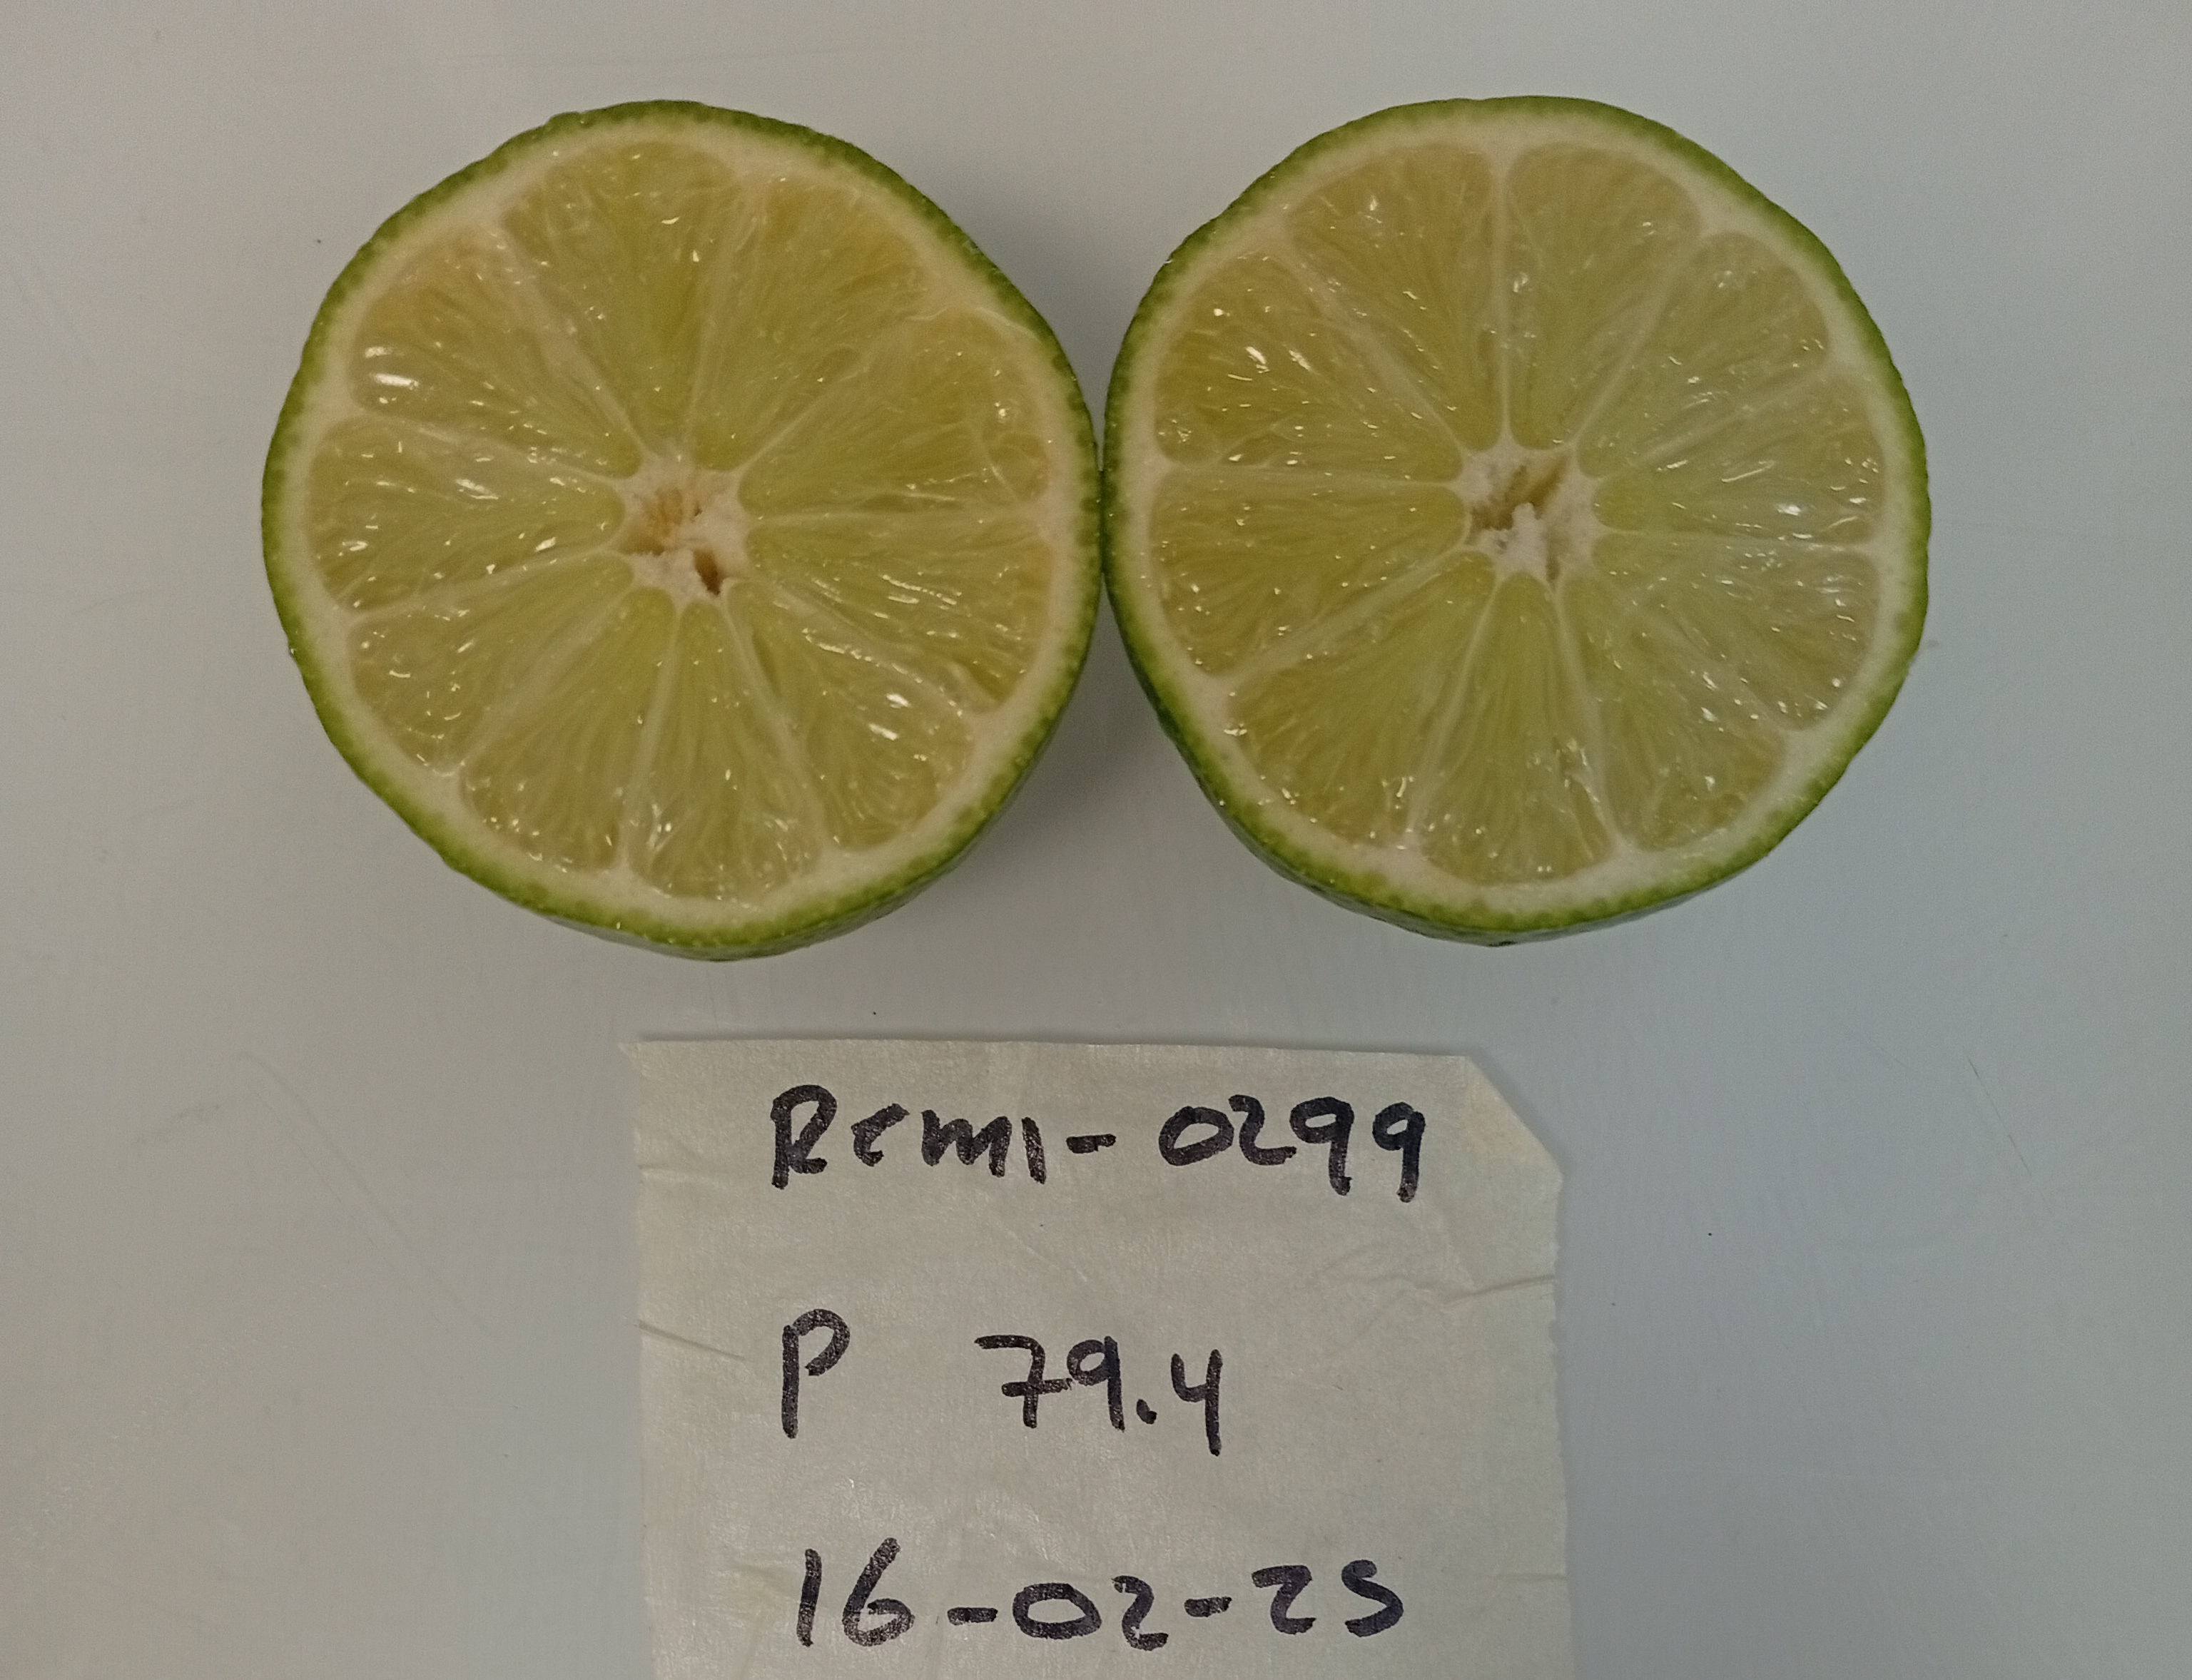 Remi-0299
P 79.4
16-02-25